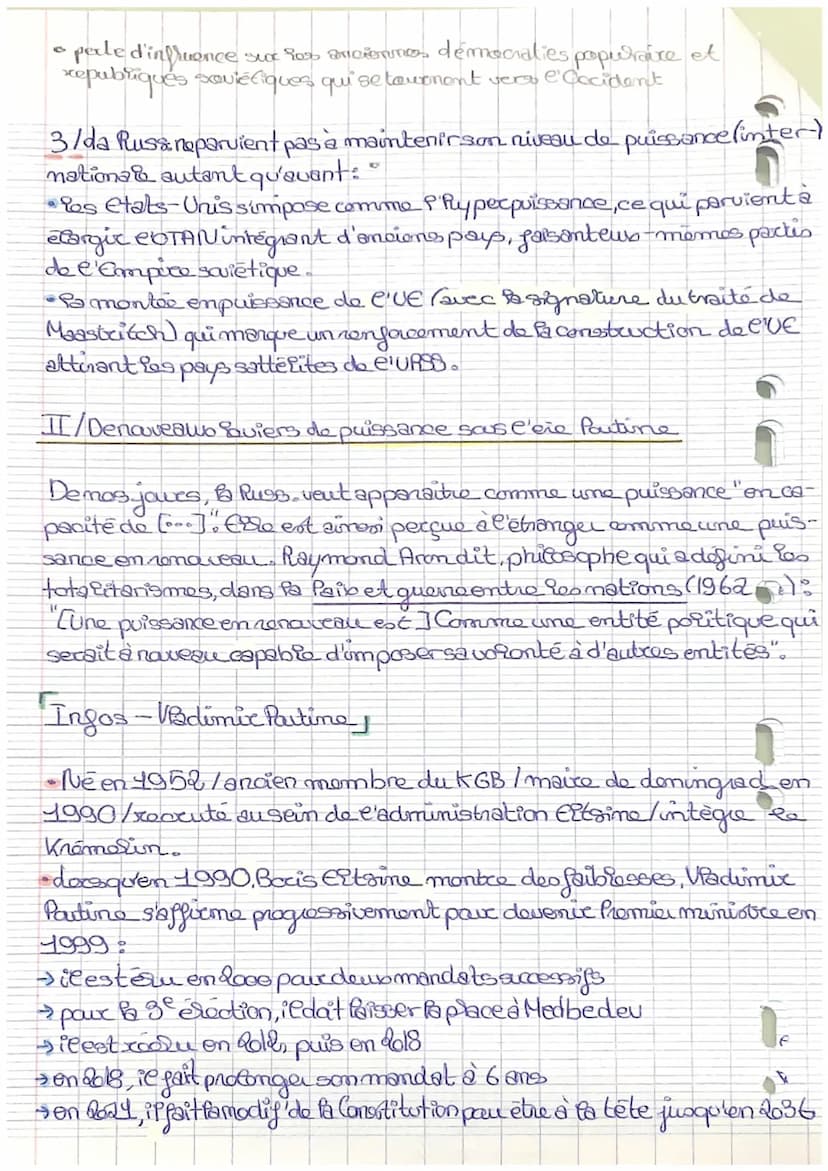 • perte d'influence sur les anciennes démocraties populaire et
républiques soviétiques qui se tournent vers l'Occident
3/ La Russ. ne parvient pas à maintenir son niveau de puissance (inter-)
nationale autant qu'avant :
• les Etats-Unis s'impose comme l'Hyperpuissance, ce qui parvient à
élargir l'OTAN intégrant d'anciens pays, faisant eux-mêmes partis
de l'Empire soviétique.
• la montée en puissance de l'UE (avec la signature du traité de
Maastritch) qui marque un renforcement de la construction de l'UE
attirant les pays sattélites de l'URSS.
II/ De nouveaux leviers de puissance sous l'ère Poutine
De nos jours, la Russ. veut apparaître comme une puissance "en ca-
pacité de [...]". Elle est ainsi perçue à l'étranger comme une puis-
sance en renouveau. Raymond Aron dit, philosophe qui a défini les
totalitarismes, dans la Paix et guerre entre les nations (1962) :
"[Une puissance en renouveau est] Comme une entité politique qui
serait à nouveau capable d'imposer sa volonté à d'autres entités".
「Infos - Vladimir Poutine」
• Né en 1952 / ancien membre du KGB / maire de Leningrad en
1990 / recruté au sein de l'administration Eltsine / intègre le
Krémelin.
• Lorsqu'en 1990, Boris Eltsine montre des faiblesses, Vladimir
Poutine s'affirme progressivement pour devenir Premier ministre en
1999 :
→ il est élu en 2000 pour deux mandats successifs
→ pour la 3e éléction, il doit laisser la place à Medbedev
→ il est réélu en 2012, puis en 2018
→ en 2018, il fait prolonger son mandat à 6 ans
→ en 2021, il fait la modif' de la Constitution pour être à la tête jusqu'en 2036